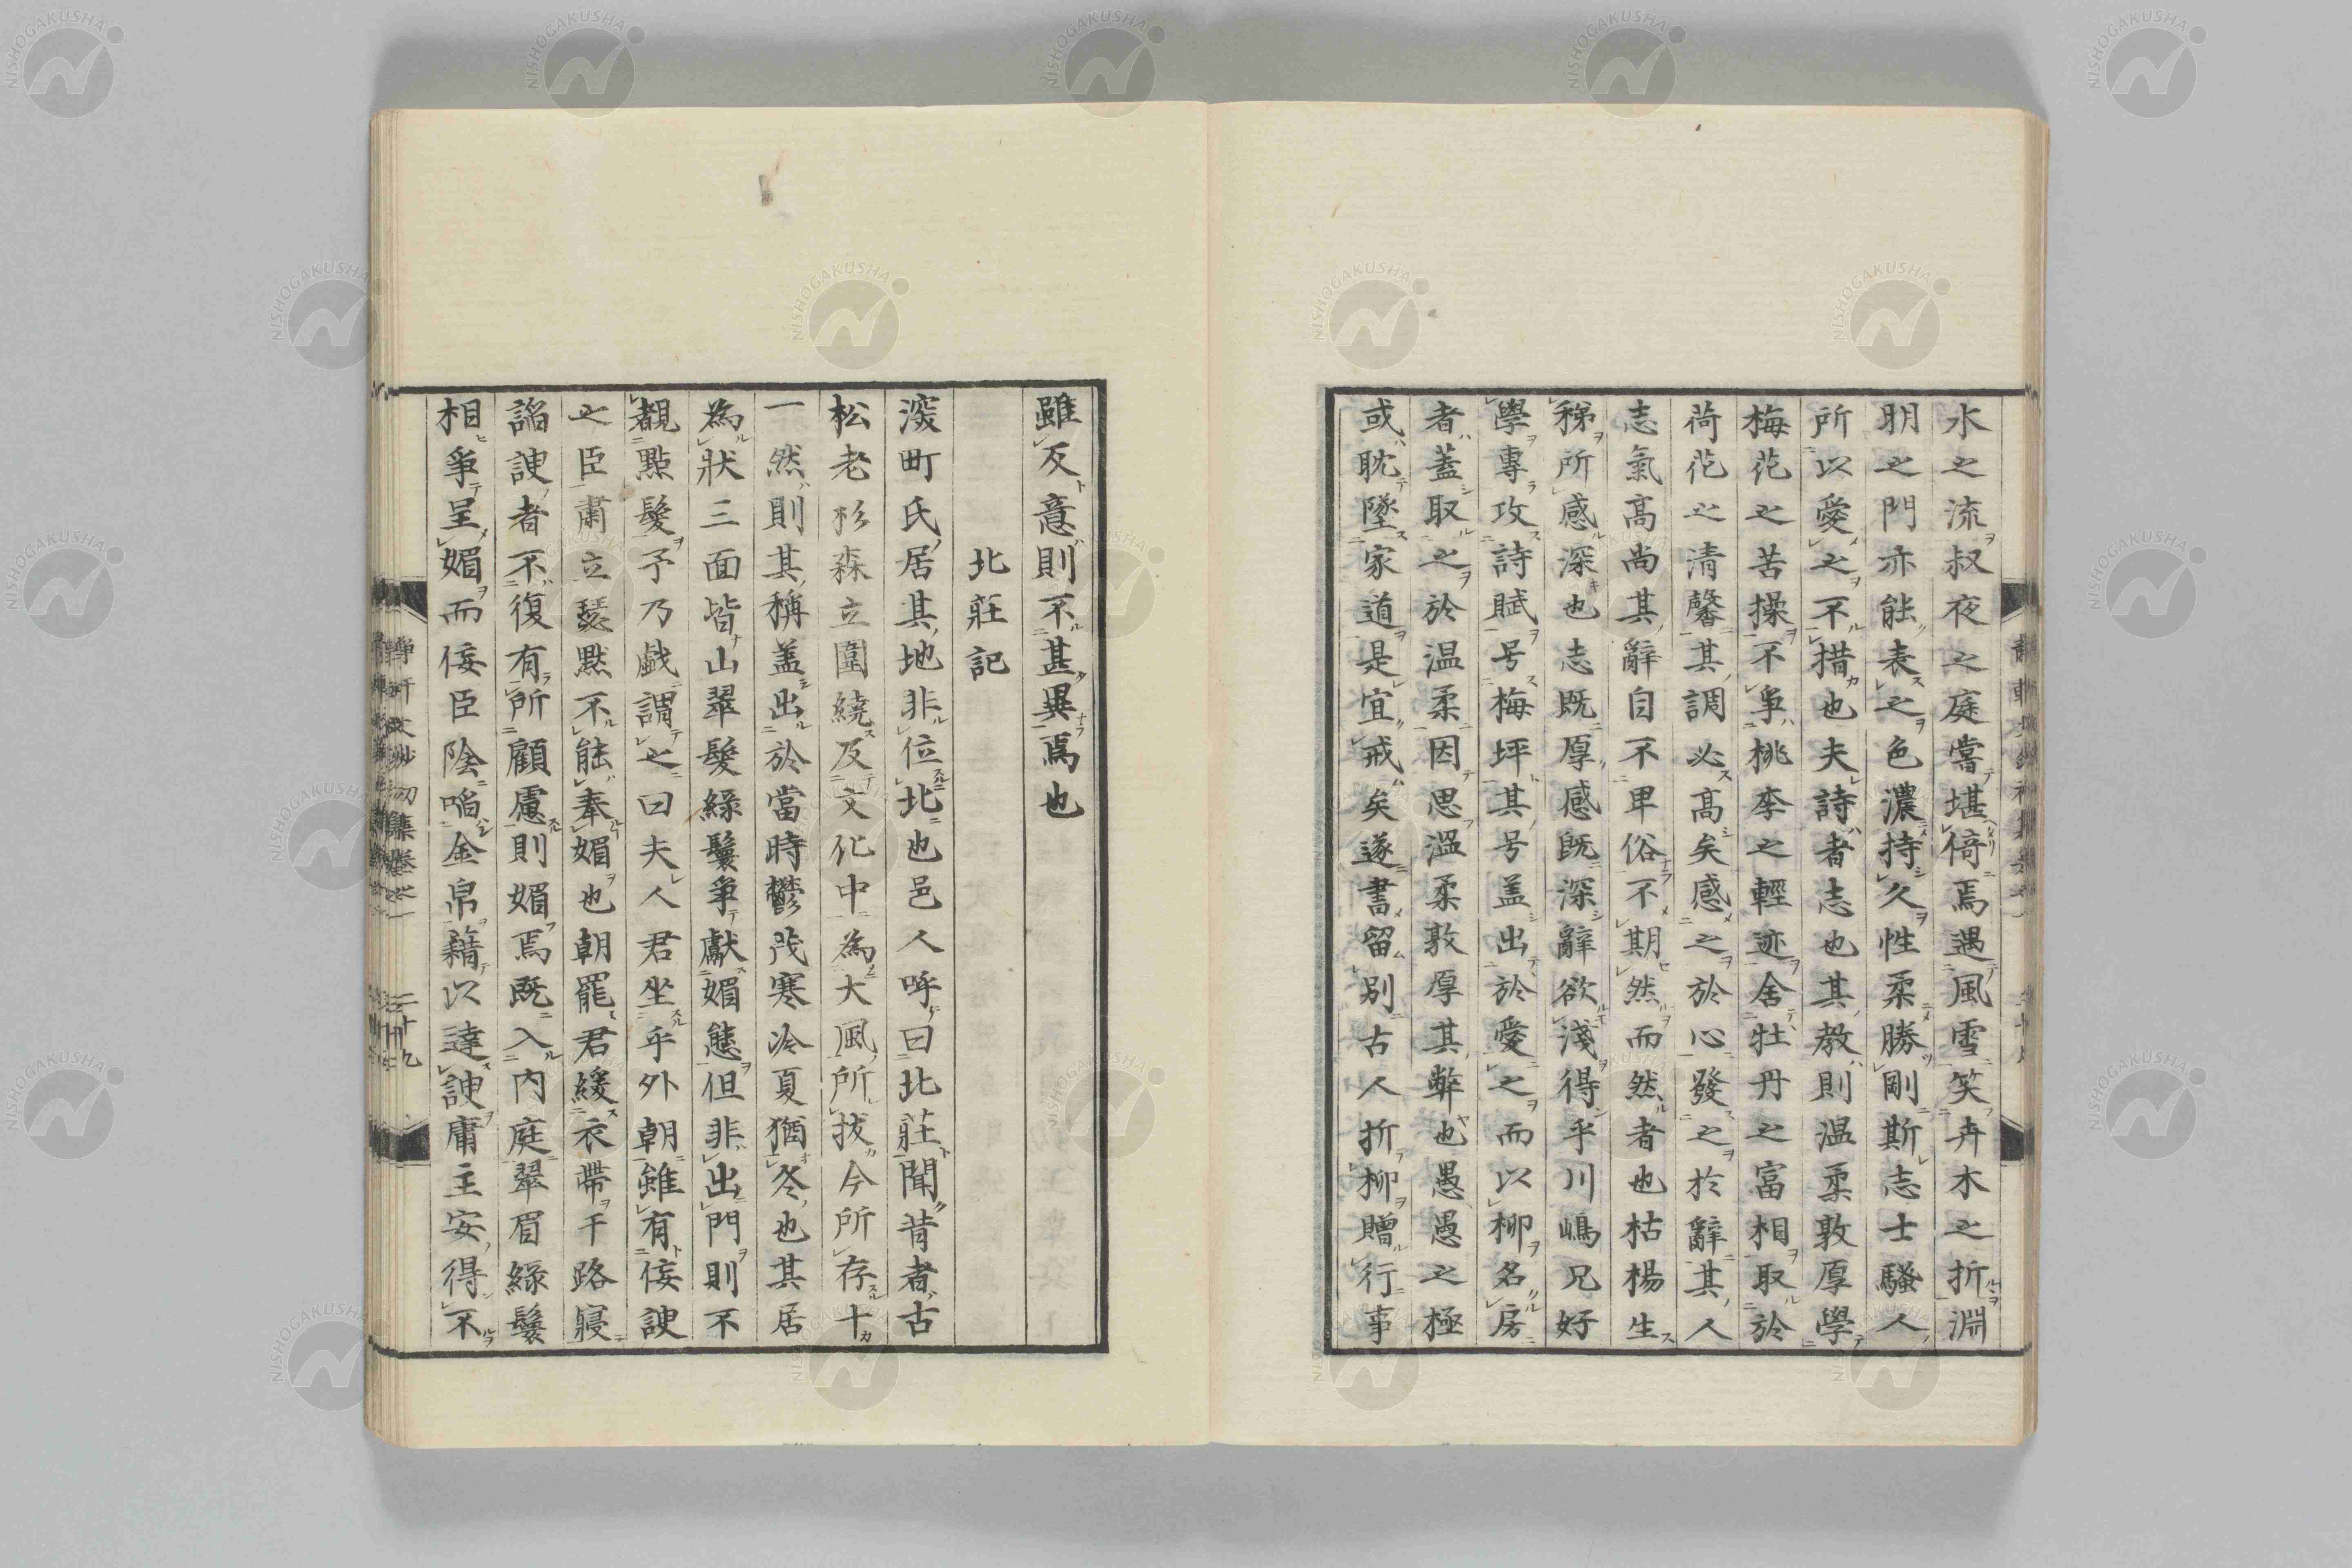 水之流叔夜之庭嘗堪倚焉遇風雪笑卉木之折淵
明之門亦能表之色濃持久性柔勝剛斯志士騷人
所以愛之不措也夫詩者志也其教則温柔敦厚學
梅花之苦操不爭桃李之輕迹舍牡丹之富相取於
荷花之清馨其調必高矣感之於心發之於辭其人
志氣高尚其辭自不卑俗不期然而然者也枯楊生
稊所感深也志既厚感既深辭欲淺得乎川嶋兄好
學專攻詩賦号梅坪其号盖出於愛之而以柳名房
者蓋取之於温柔因思溫柔敦厚其弊也愚愚之極
或耽墜家道是宜戒矣遂書留別古人折柳贈行事
雖反意則不甚異焉也
北莊記
町氏居其地非位北也邑人呼曰北莊聞昔者古
松老杉森立圍繞及文化中為大風所拔今所存十
一然則其稱盖出於當時鬱茂寒冷夏猶冬也其居
為狀三面皆山翠髮綠鬟爭獻媚態但非出門則不
覩點髮予乃戲謂之曰夫人君坐乎外朝雖有佞諛
之臣肅立瑟默不能奉媚也朝罷君緩衣帶于路寢
諂諛者不復有所顧慮則媚焉既入内庭翠眉綠鬟
相爭呈媚而佞臣陰啗金帛藉以達諛庸主安得不